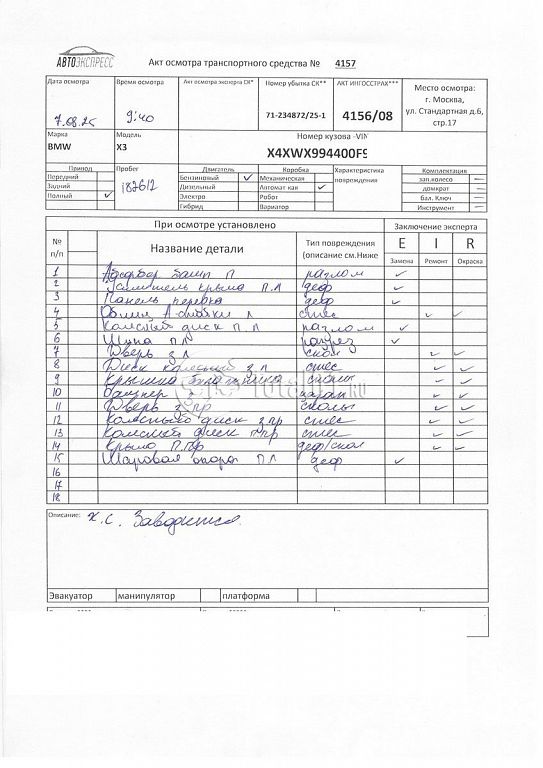 АВТОЭКСПРЕСС
Акт осмотра транспортного средства № 4157
Дата осмотра
Время осмотра
Акт осмотра эксперта СК*
Номер убытка СК**
АКТ ИНГОССТРАХ***
Место осмотра:
г. Москва,
ул. Стандартная д.6,
стр.17
7.08.25
9:40
71-234872/25-1
4156/08
Марка
Модель
Номер кузова -VIN
BMW
X3
X4XWX994400F9
Привод
Пробег
Двигатель
Коробка
Характеристика
повреждения
Комплектация
Передний
Бензиновый ✓
Механическая
зап.колесо —
Задний
187612
Дизельный
Автомат кая ✓
домкрат —
Полный ✓
Электро
Робот
бал. Ключ —
Гибрид
Вариатор
Инструмент —
При осмотре установлено
Заключение эксперта
№
п/п
Название детали
Тип повреждения
(описание см.Ниже
E I R
Замена Ремонт Окраска
1 Абсорбер бамп П разлом ✓
2 крыла П.Л деф ✓
3 Панель передка деф ✓
4 А-стойки л ✓ ✓
5 Колесный диск П.Л разлом ✓
6 Шина ПЛ разрез ✓
7 Дверь З Л скол ✓ ✓
8 Диск колесный З Л ✓ ✓
9 Крышка багажника сколы ✓ ✓
10 Бампер З ✓ ✓
11 Дверь З ПР сколы ✓ ✓
12 Колесный диск З ПР ✓ ✓
13 Колесный диск П ПР ✓ ✓
14 Крыло П.ПР деф/скол ✓ ✓
15 Шаровая опора П Л деф ✓
16
17
18
Total01.RU
Описание: Х.С. Заводится.
Эвакуатор манипулятор платформа